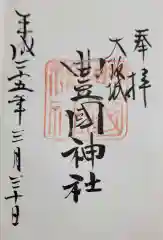 奉拝
大阪城
豊國神社
平成二五年三月三十日